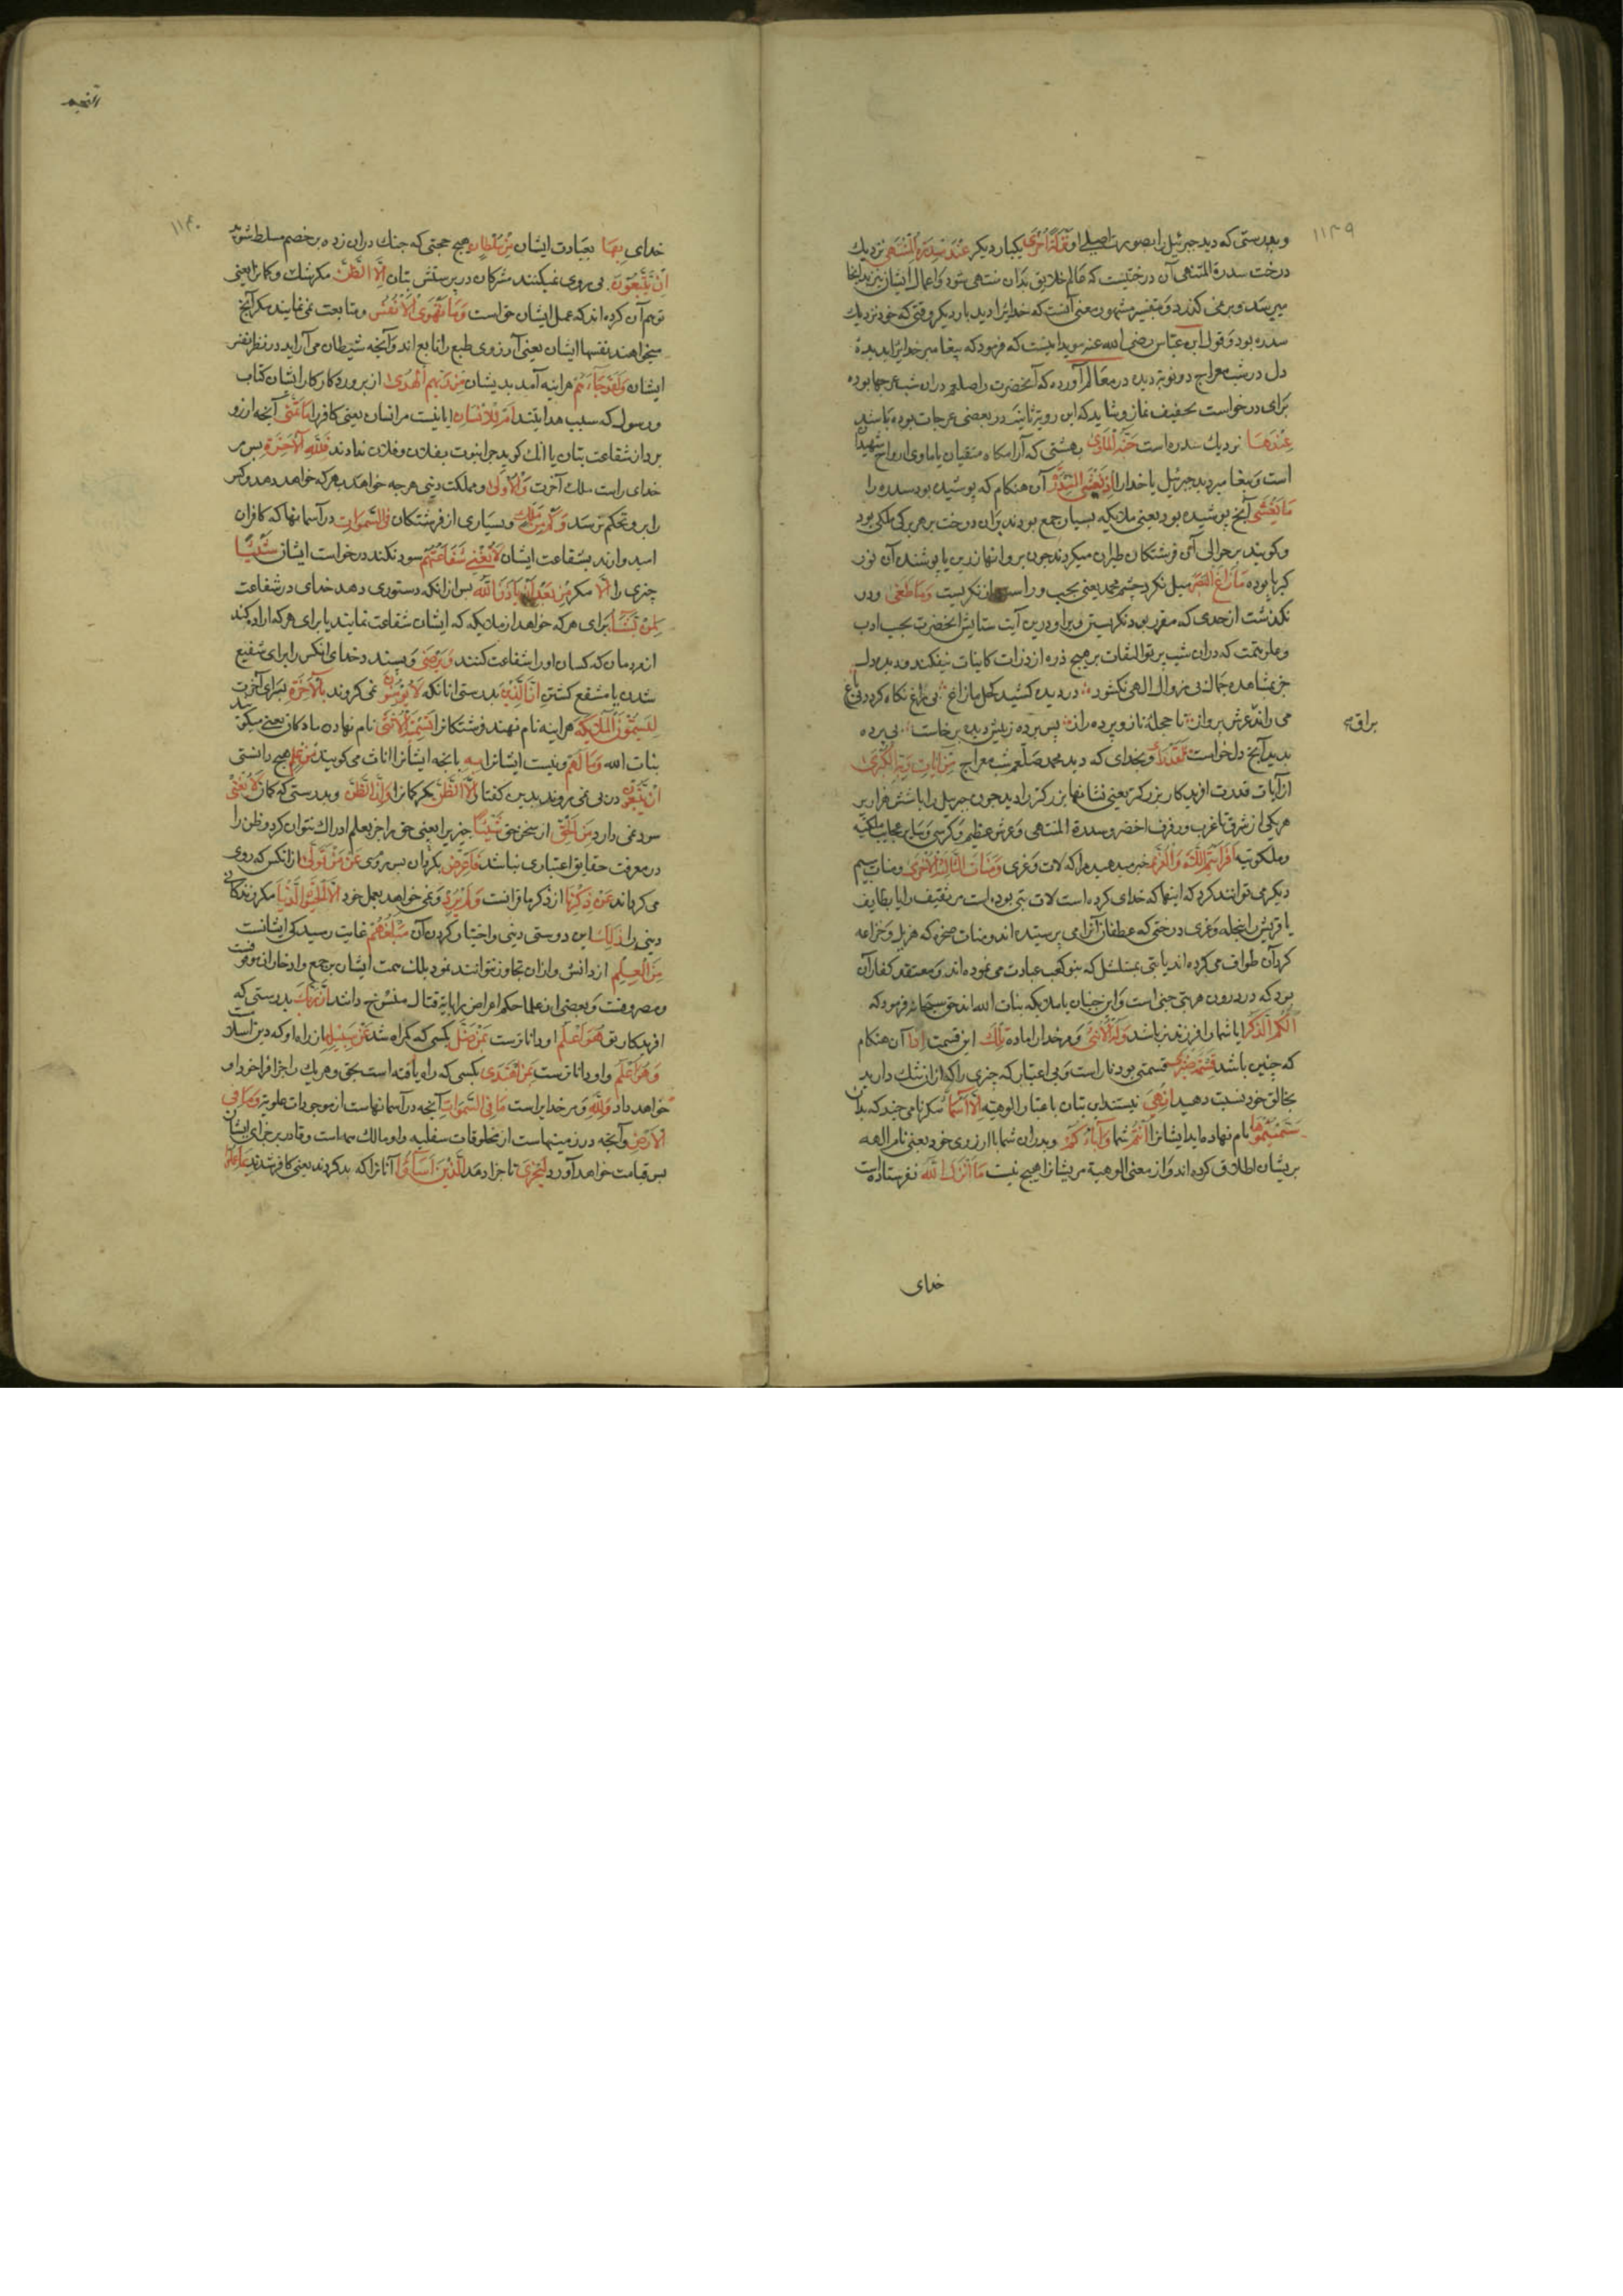 ١١٣٩
و بدرستی که دید جبرئیل را بصورت اصلی او نَزْلَةً اُخْرَى یکبار دیکر عِنْدَ سِدْرَةِ الْمُنْتَهَى نزدیك
درخت سدرة المنتهی آن درختیست که عالم خلایق بدان منتهی شود و اعمال ایشان نیز بدانجا
میرسد و برنمی کذرد و بتفسیر مشهور معنی آنست که خدایرا دید بار دیکر وقتی که خود نزدیك
سدره بود و قول ابن عباس رضی الله عنه موید اینست که فرمود که پیغامبر خدایرا بدیده
دل در شب معراج دو نوبت دید در معالم آورده که آنحضرت را صلعم در ان شب عرجها بوده
برای درخواست تخفیف نماز و شاید که این رویت ثانیه در بعضی عرجات بوده باشد
عِنْدَهَا نزدیك سدره است جَنَّةُ الْمَأْوَى بهشتی که آرامکاه متقیان یا ماوی ارواح شهدا
است و پیغامبر دید جبرئیل یا خدا را اِذْ يَغْشَى السِّدْرَةَ آن هنکام که پوشیده بود سدره را
مَا يَغْشَى آنچه پوشیده بود یعنی ملایکه بسیار جمع بودند بران درخت بر هر برکی ملکی بود
و کویند بر حوالی آن فرشتکان طیران میکردند چون پروانها زرین یا پوشنده آن نور
کبریا بوده مَا زَاغَ الْبَصَرُ میل نکرد چشم محمد یعنی بچپ و راست از نکریست وَمَا طَغَى و در
نکذشت از حدی که مقرر بود نکریستن ویرا و درین آیت ستایش آنحضرت بحسب ادب
و علو همت که دران شب پرتو التفات بر هیچ ذره از ذرات کاینات نیفکند و دیده دل
جز بمشاهده جمال بی زوال الهی نکشود در دیده کشید کحل مازاغ نی راغ نکاه کرد و نی باغ
می راند عرش پرواز تا حجله ناز و پرده راز پس پرده ز پیش دیده برخاست بی پرده
براق
بدید آنچ دلخواست لَقَدْ رَأَى و بخدای که دید محمد صلعم شب معراج مِنْ اٰيَاتِ رَبِّهِ الْكُبْرَى
از آیات قدرت افریدکار بزرکتر یعنی نشانها بزرکتر را دید چون جبرئیل را با ششهزار پر
هریکی از شرق تا غرب و رفرف اخضر و سدرة المنتهی و عرش عظیم و کرسی و سایر عجایب ملکیه
و ملکوتیه اَفَرَاَيْتُمُ اللَّاتَ وَالْعُزَّى خبر میدهید مرا که لات و عزی وَمَنَاةَ الثَّالِثَةَ الْاُخْرَى و منات سیم
دیکر می توانند کرد که اینها که خدای کرده است لات بتی بوده است مر ثقیف را یا بطایف
یا قریش را بنخله و عزی درختی که غطفان آنرا می پرستیده اند و منات صخره که هزیل و خزاعه
کرد آن طواف می کرده اند یا بتی بمشلل که بنو کعب عبادت می نموده اند و معتقد کفار آن
بود که در درون هر بتی جنی است و این جنیان یا ملایکه بنات الله اند حق سبحانه فرمود که
اَلَكُمُ الذَّكَرُ ایا شما را فرزند نر باشد وَلَهُ الْاُنْثَى و مر خدا را ماده تِلْكَ این قسمت اِذًا آن هنکام
که چنین باشد قِسْمَةٌ ضِيزَى قسمتی بود ناراست و بی اعتبار که چیزی را که ازان ننك دارید
بخالق خود نسبت دهید اِنْ هِيَ نیستند این بتان باعتبار الوهیه اِلَّا اَسْمَاءٌ مکر نامی چند که بدان
سَمَّيْتُمُوهَا نام نهاده اید ایشانرا اَنْتُمْ شما وَاٰبَاؤُكُمْ و پدران شما با ارزوی خود یعنی نام الهه
بریشان اطلاق کرده اند و از معنی الوهیة مریشانرا هیچ نیست مَا اَنْزَلَ اللهُ نفرستاده است
خدای
النجم
١١٤٠
خدای بِهَا بعبادت ایشان مِنْ سُلْطَانٍ هیچ حجتی که چنك دران زده بر خصم مسلط شوید
اِنْ يَتَّبِعُونَ پی روی نمیکنند مشرکان در پرستش بتان اِلَّا الظَّنَّ مکر شك و کمان را یعنی
توهم آن کرده اند که عمل ایشان حق است وَمَا تَهْوَى الْاَنْفُسُ و متابعت نمی نمایند مکر آنچ
میخواهند نفسها ایشان یعنی آرزوی طبع را تابع اند و آنچه شیطان می آراید در نظر نفس
ایشان وَلَقَدْ جَاءَهُمْ هراینه آمد بدیشان مِنْ رَبِّهِمُ الْهُدَى از پروردکار ایشان کتاب
و رسول که سبب هدایتند اَمْ لِلْاِنْسَانِ ایا نیست مر انسان یعنی کافر را مَا تَمَنَّى آنچه ارزو
برد از شفاعت بتان یا انك کوید چرا نبوت بفلان و فلان ندادند فَلِلّٰهِ الْاٰخِرَةُ پس مر
خدای راست ملك آخرت وَالْاُولَى و مملکت دنیی هرچه خواهد بهر که خواهد دهد و کس
را برو تحکم نرسد وَكَمْ مِنْ مَلَكٍ و بسیاری از فرشتکان فِي السَّمٰوَاتِ در آسمانها که کافران
امیدوارند بشفاعت ایشان لَا تُغْنِي شَفَاعَتُهُمْ سود نکند درخواست ایشان شَيْئًا
چیزی را اِلَّا مکر مِنْ بَعْدِ اَنْ يَأْذَنَ اللهُ پس ازانکه دستوری دهد خدای در شفاعت
لِمَنْ يَشَاءُ برای هر که خواهد از ملایکه که ایشان شفاعت نمایند یا برای هر که اراده کند
از مردمان که کسان او را شفاعت کنند وَيَرْضَى و پسندد خدای انکس را برای شفیع
شدن یا مشفع کشتن اِنَّ الَّذِينَ بدرستی انانکه لَا يُؤْمِنُونَ نمی کروند بِالْاٰخِرَةِ بسرای آخرت
لَيُسَمُّونَ الْمَلٰئِكَةَ هراینه نام نهند فرشتکانرا تَسْمِيَةَ الْاُنْثَى نام نهادن مادکان یعنی میکویند
بنات الله وَمَا لَهُمْ و نیست ایشانرا بِهِ بانچه ایشانرا اناث می کویند مِنْ عِلْمٍ هیچ دانستی
اِنْ يَتَّبِعُونَ در پی نمی روند بدین کفتار اِلَّا الظَّنَّ مکر کمانرا وَاِنَّ الظَّنَّ و بدرستی که کمان لَا يُغْنِي
سود نمی دارد مِنَ الْحَقِّ از سخن حق شَيْئًا چیزیرا یعنی حق را جز بعلم ادراك نتوان کرد و ظن را
در معرفت حقایق اعتباری نباشد فَاَعْرِضْ بکردان پس روی عَنْ مَنْ تَوَلَّى ازانکس که روی
می کرداند عَنْ ذِكْرِنَا از ذکر ما قرانست وَلَمْ يُرِدْ و نمی خواهد بعمل خود اِلَّا الْحَيٰوةَ الدُّنْيَا مکر زندکانی
دنیی را ذٰلِكَ این دوستی دنیی و اختیار کردن آن مَبْلَغُهُمْ غایت رسیدکی ایشانست
مِنَ الْعِلْمِ از دانش و ازان تجاوز نتوانند نمود بلك همت ایشان بر جمع و ادخار ان موقوفست
و مصروفست و بعضی از علما حکم اعراض را بایة قتال منسوخ داشتند اِنَّ رَبَّكَ بدرستی که
افریدکار تو هُوَ اَعْلَمُ او داناترست بِمَنْ ضَلَّ بکسی که کمراه شد عَنْ سَبِيلِهِ از راه او که دین اسلامست
وَهُوَ اَعْلَمُ و او داناترست بِمَنِ اهْتَدَى بکسی که راه یافته است بحق و هریك را جزا فراخور او
خواهد داد وَلِلّٰهِ و مر خدایراست مَا فِي السَّمٰوَاتِ آنچه در آسمانهاست از موجودات علویه وَمَا فِي
الْاَرْضِ و آنچه در زمینهاست از مخلوقات سفلیه و او مالك همه است و قادر بر جزای ایشان
پس قیامت خواهد آورد لِيَجْزِيَ تا جزا دهد الَّذِينَ اَسَاؤُا آنانرا که بد کردند یعنی کافر شدند بِمَا عَمِلُوا